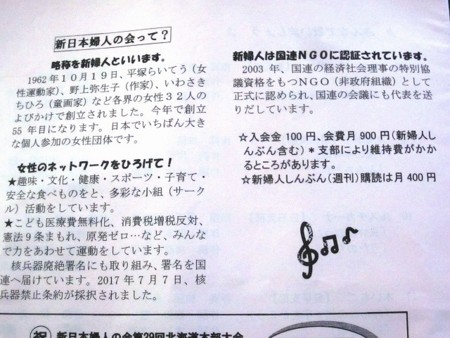 新日本婦人の会って?
略称を新婦人といいます。
1962年10月19日、平塚らいてう(女
性運動家)、野上弥生子(作家)、いわさき
ちひろ(童画家)など各界の女性32人の
よびかけで創立されました。今年で創立
55年目になります。日本でいちばん大き
な個人参加の女性団体です。
女性のネットワークをひろげて!
★趣味・文化・健康・スポーツ・子育て・
安全な食べものをと、多彩な小組(サーク
ル)活動をしています。
★こども医療費無料化、消費税増税反対、
憲法9条まもれ、原発ゼロ…など、みんな
で力をあわせて運動をしています。
核兵器廃絶署名にも取り組み、署名を国
連へ届けています。2017年7月7日、核
兵器禁止条約が採択されました。
新婦人は国連NGOに認証されています。
2003年、国連の経済社会理事の特別協
議資格をもつNGO(非政府組織)として
正式に認められ、国連の会議にも代表を送
りだしています。
☆入会金100円、会費月900円(新婦人し
んぶん含む)*支部により維持費がかか
るところがあります。
☆新婦人しんぶん(週刊)購読は月400円
祝 新日本婦人の会第29回北海道本部大会